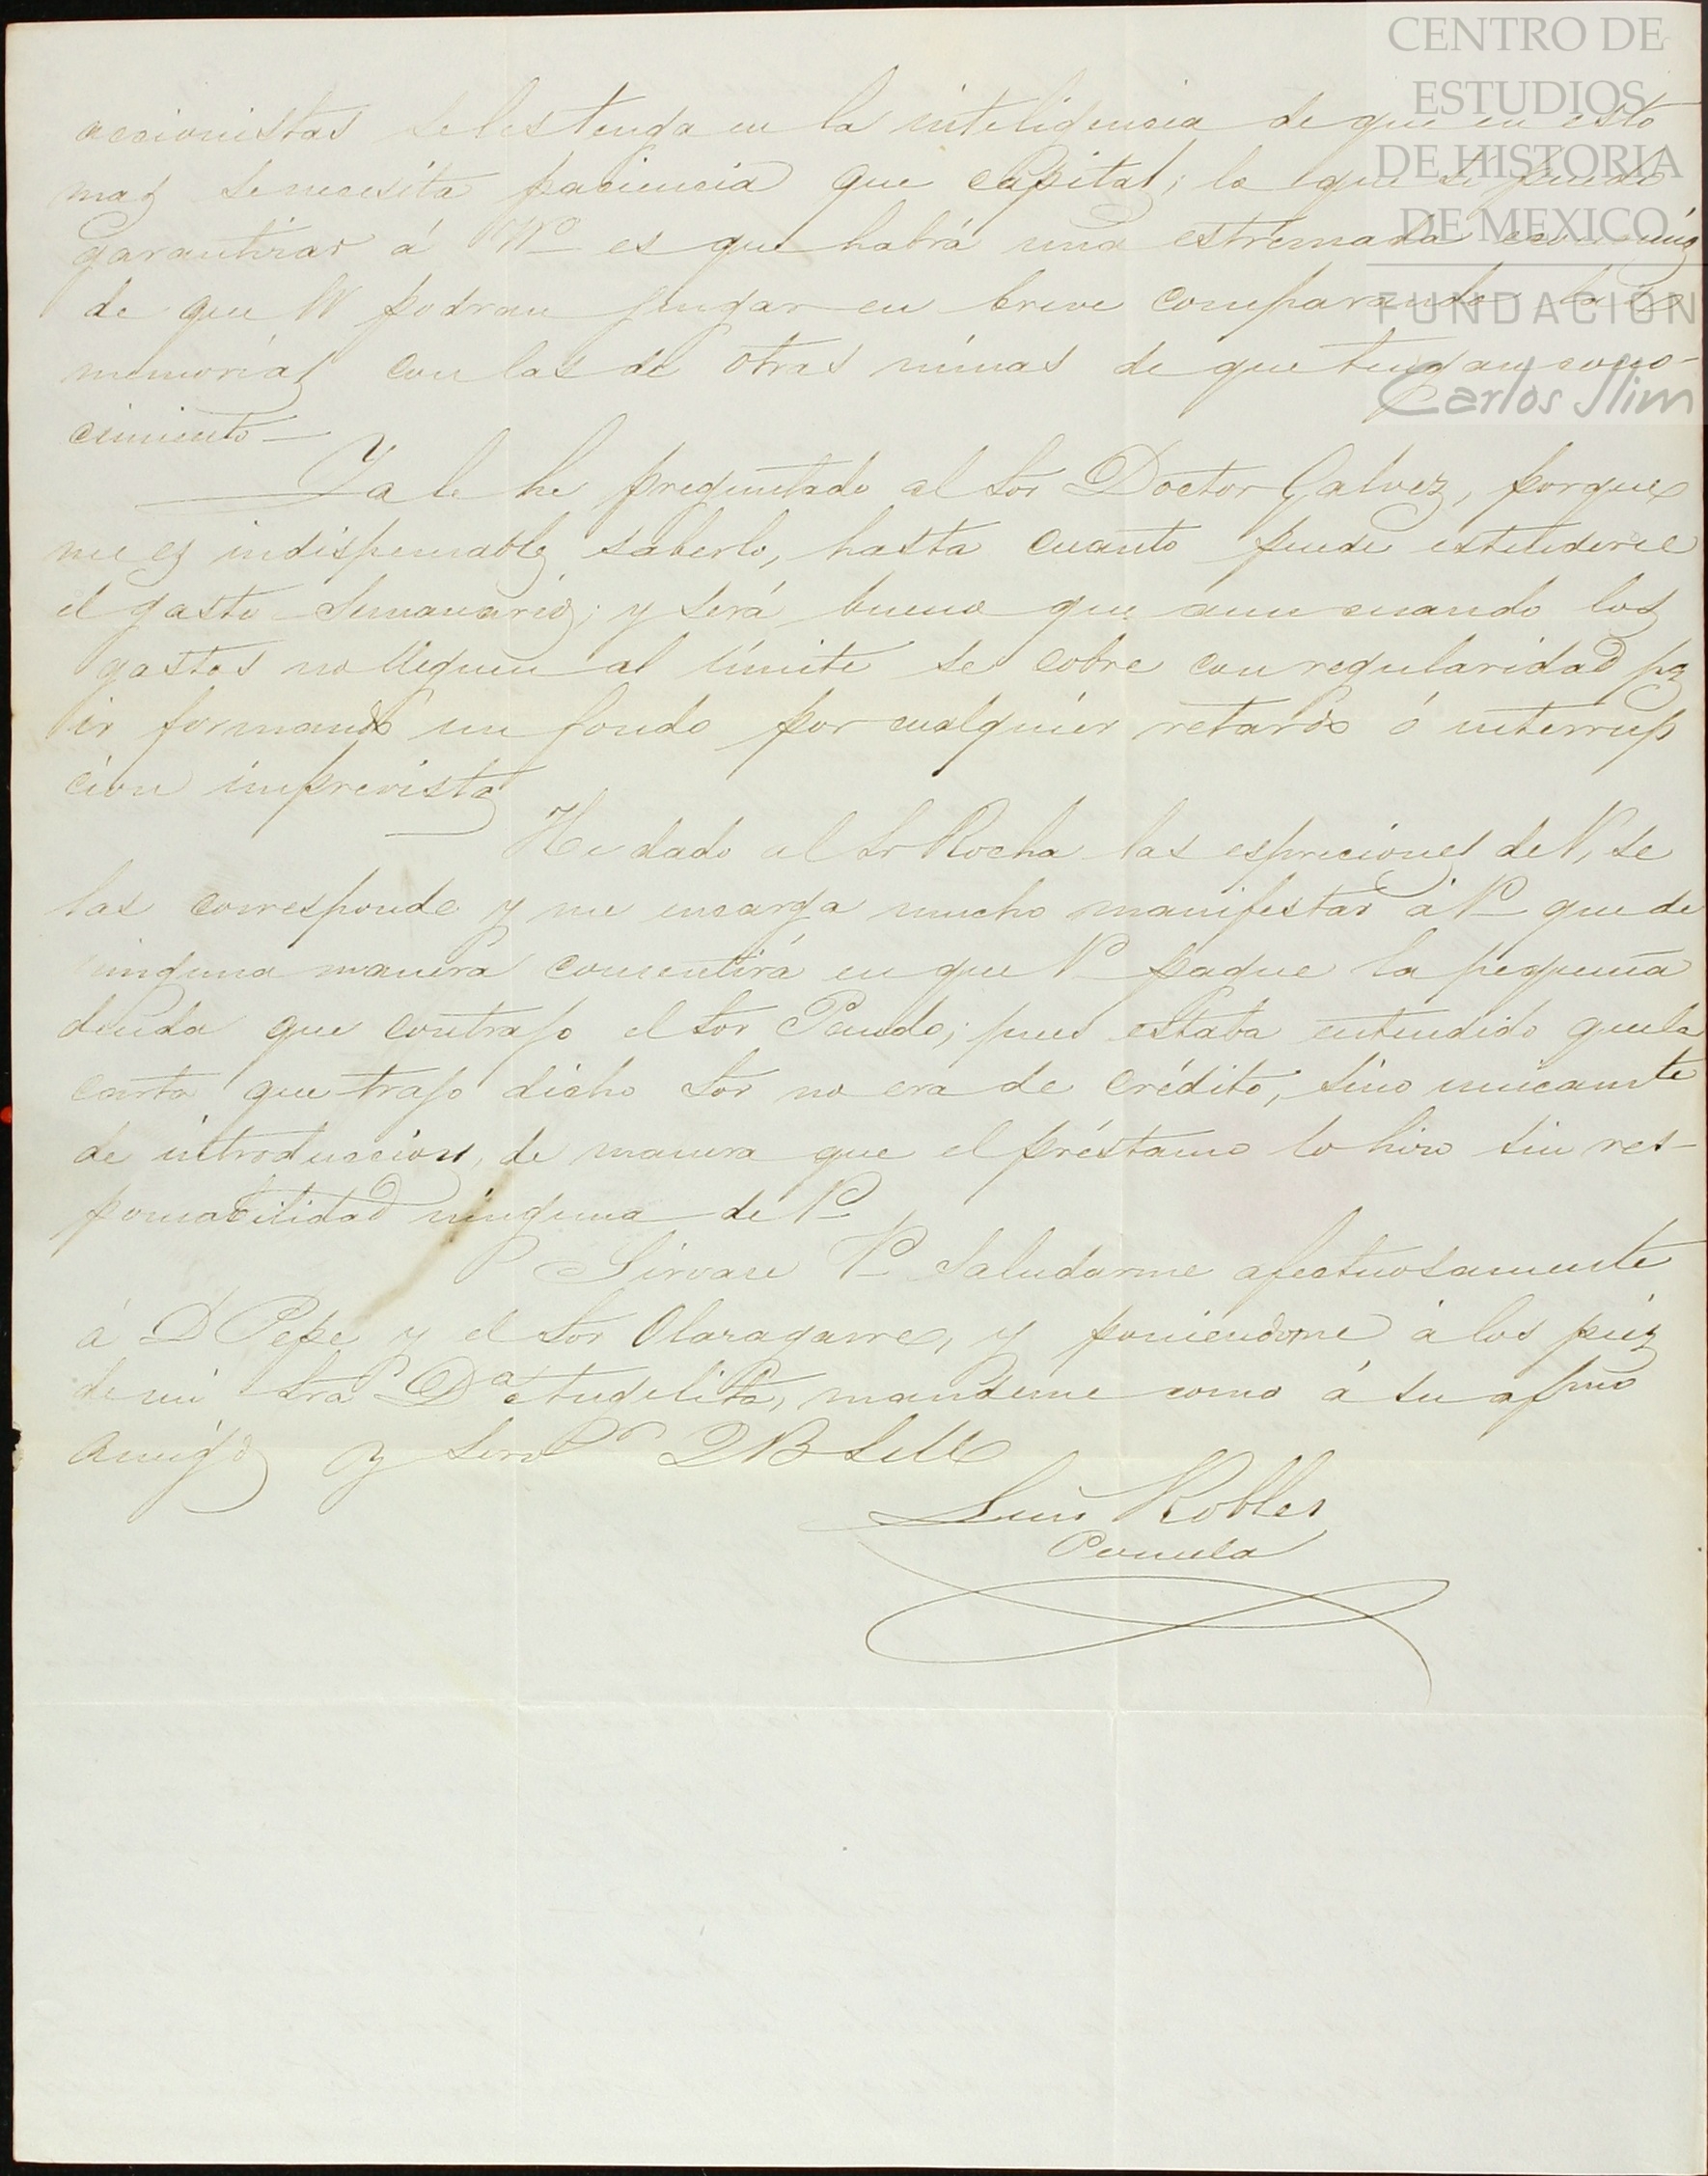 CENTRO DE
ESTUDIOS
DE HISTORIA
DE MEXICO
FUNDACION
Carlos Slim
accionistas seles tenga en la inteligencia de que en esto
mas se necesita paciencia que capital; lo que si puedo
garantizar á VV es que habrá una estremada
de que VV podran juzgar en breve comparando las
memorias con las de otras minas de que tengan cono-
cimiento—
Ya le he preguntado al Sor Doctor Galvez, porque
me es indispensable saberlo, hasta cuanto puede estenderse
el gasto semanario; y será bueno que aun cuando los
gastos no lleguen al límite se cobre con regularidad pa
ir formando un fondo por cualquier retardo ó interrup
cion imprevista
He dado al Sr Rocha las espreciones de V, se
las corresponde y me encarga mucho manifestar á V que de
ninguna manera consentirá en que V pague la pequeña
deuda que contrajo el Sor Pando; pues estaba entendido que la
carta que trajo dicho Sor no era de crédito, sino unicamte
de introduccion, de manera que el préstamo lo hizo sin res-
ponsabilidad ninguna de V
Sirvase V saludarme afectuosamente
á D Pepe y el Sor Olazagarre, y poniendome á los pies
de mi Sra Da Angelita, mandeme como á su afmo
amigo y servor Q B S M
Luis Robles
Pezuela